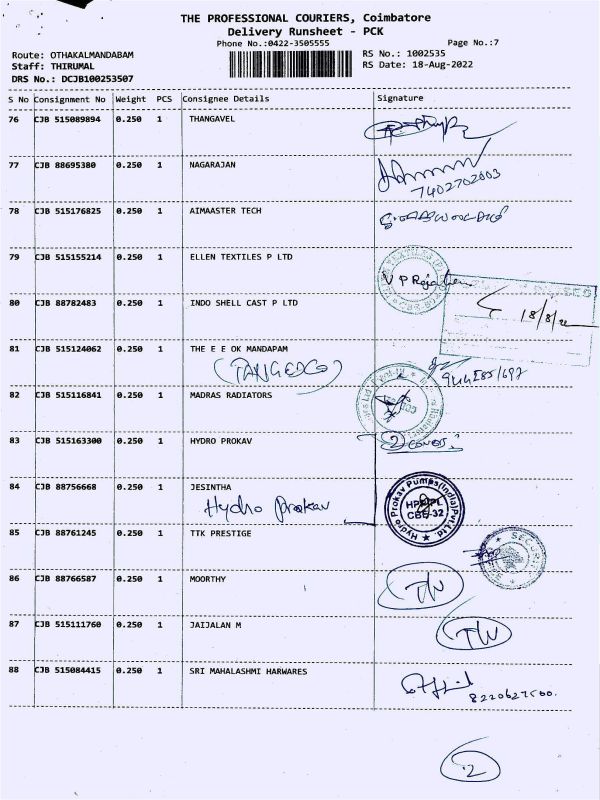 THE PROFESSIONAL COURIERS, Coimbatore
Delivery Runsheet - PCK
Phone No.:0422-3505555
Page No.:7
Route: OTHAKALMANDABAM
RS No.: 1002535
Staff: THIRUMAL
RS Date: 18-Aug-2022
DRS No.: DCJB100253507
S No Consignment No Weight PCS Consignee Details Signature
76 CJB 515089894 0.250 1 THANGAVEL
77 CJB 88695380 0.250 1 NAGARAJAN
7402702003
78 CJB 515176825 0.250 1 AIMAASTER TECH
79 CJB 515155214 0.250 1 ELLEN TEXTILES P LTD
V P Raja
80 CJB 88782483 0.250 1 INDO SHELL CAST P LTD
18/8/22
81 CJB 515124062 0.250 1 THE E E OK MANDAPAM
(TANGEDCO)
82 CJB 515116841 0.250 1 MADRAS RADIATORS
83 CJB 515163300 0.250 1 HYDRO PROKAV
2
84 CJB 88756668 0.250 1 JESINTHA
Hydro Prokav
Hydro Prokav Pumps(India)Pvt.Ltd.
HPPIPL
CBE-32
85 CJB 88761245 0.250 1 TTK PRESTIGE
SECURITY
86 CJB 88766587 0.250 1 MOORTHY
87 CJB 515111760 0.250 1 JAIJALAN M
88 CJB 515084415 0.250 1 SRI MAHALASHMI HARWARES
8220627500.
2